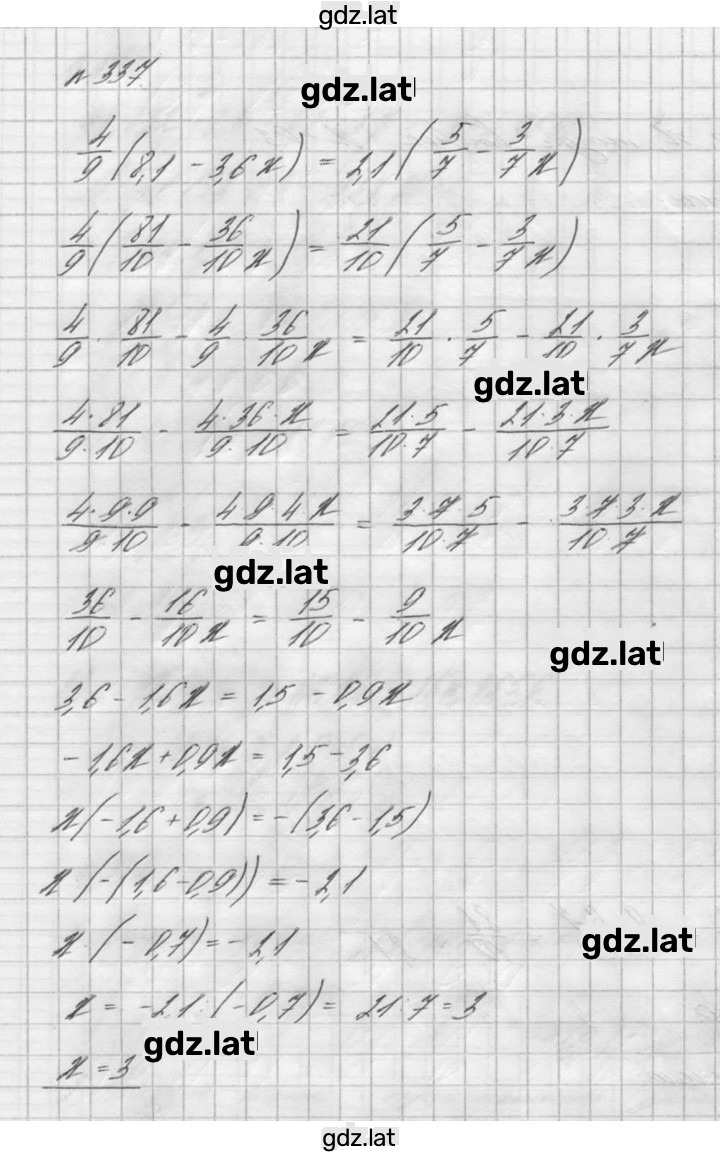 gdz.lat
n 337
gdz.lat
4/9 (8,1 - 3,6x) = 2,1 (5/7 - 3/7 x)
4/9 (81/10 - 36/10 x) = 21/10 (5/7 - 3/7 x)
4/9 · 81/10 - 4/9 · 36/10 x = 21/10 · 5/7 - 21/10 · 3/7 x
gdz.lat
4·81/9·10 - 4·36·x/9·10 = 21·5/10·7 - 21·3·x/10·7
4·9·9/9·10 - 4·9·4·x/9·10 = 3·7·5/10·7 - 3·7·3·x/10·7
gdz.lat
36/10 - 16/10 x = 15/10 - 9/10 x
gdz.lat
3,6 - 1,6x = 1,5 - 0,9x
-1,6x + 0,9x = 1,5 - 3,6
x(-1,6 + 0,9) = -(3,6 - 1,5)
x·(-(1,6 - 0,9)) = -2,1
x·(-0,7) = -2,1
gdz.lat
x = -2,1 : (-0,7) = 21 : 7 = 3
gdz.lat
x = 3
gdz.lat